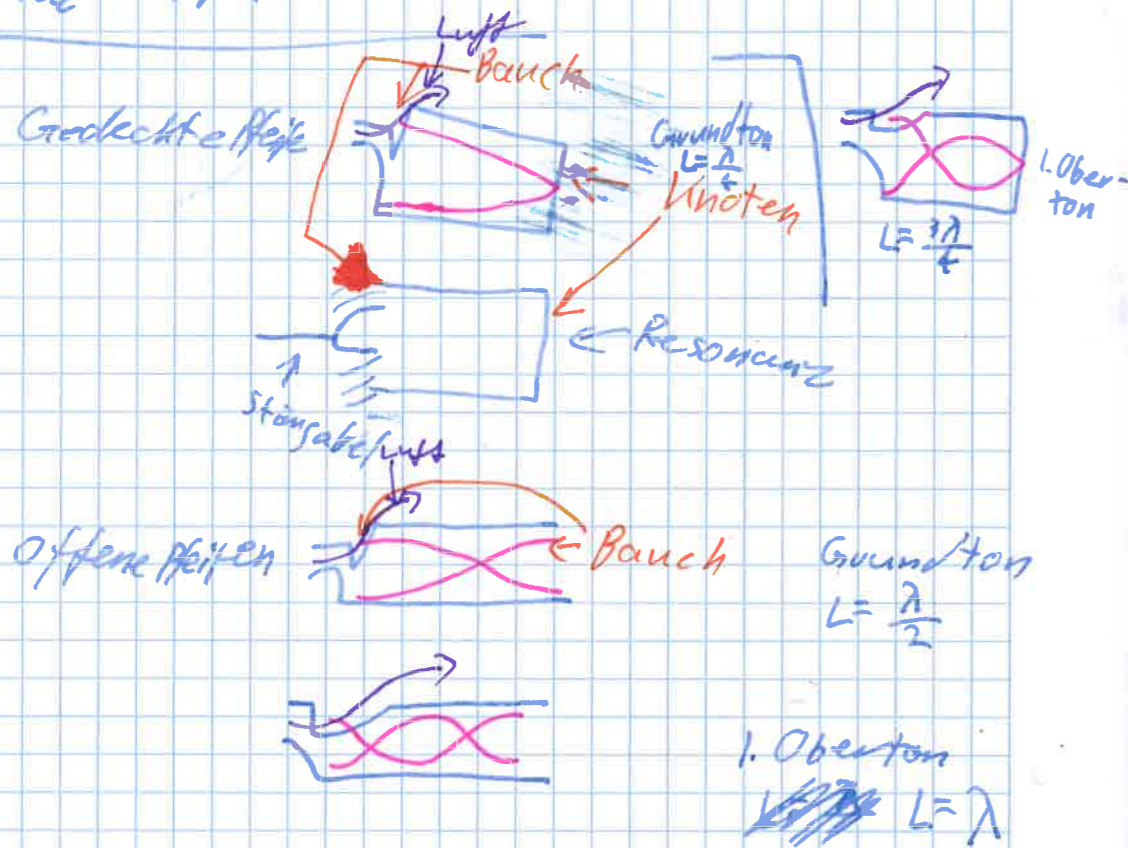 Luft
Bauch
Gedeckte Pfeife
Grundton
L = λ/4
Knoten
1. Ober-
ton
L = 3λ/4
Resonanz
Stimmgabel
Luft
Offene Pfeifen
Bauch
Grundton
L = λ/2
1. Oberton
L = λ